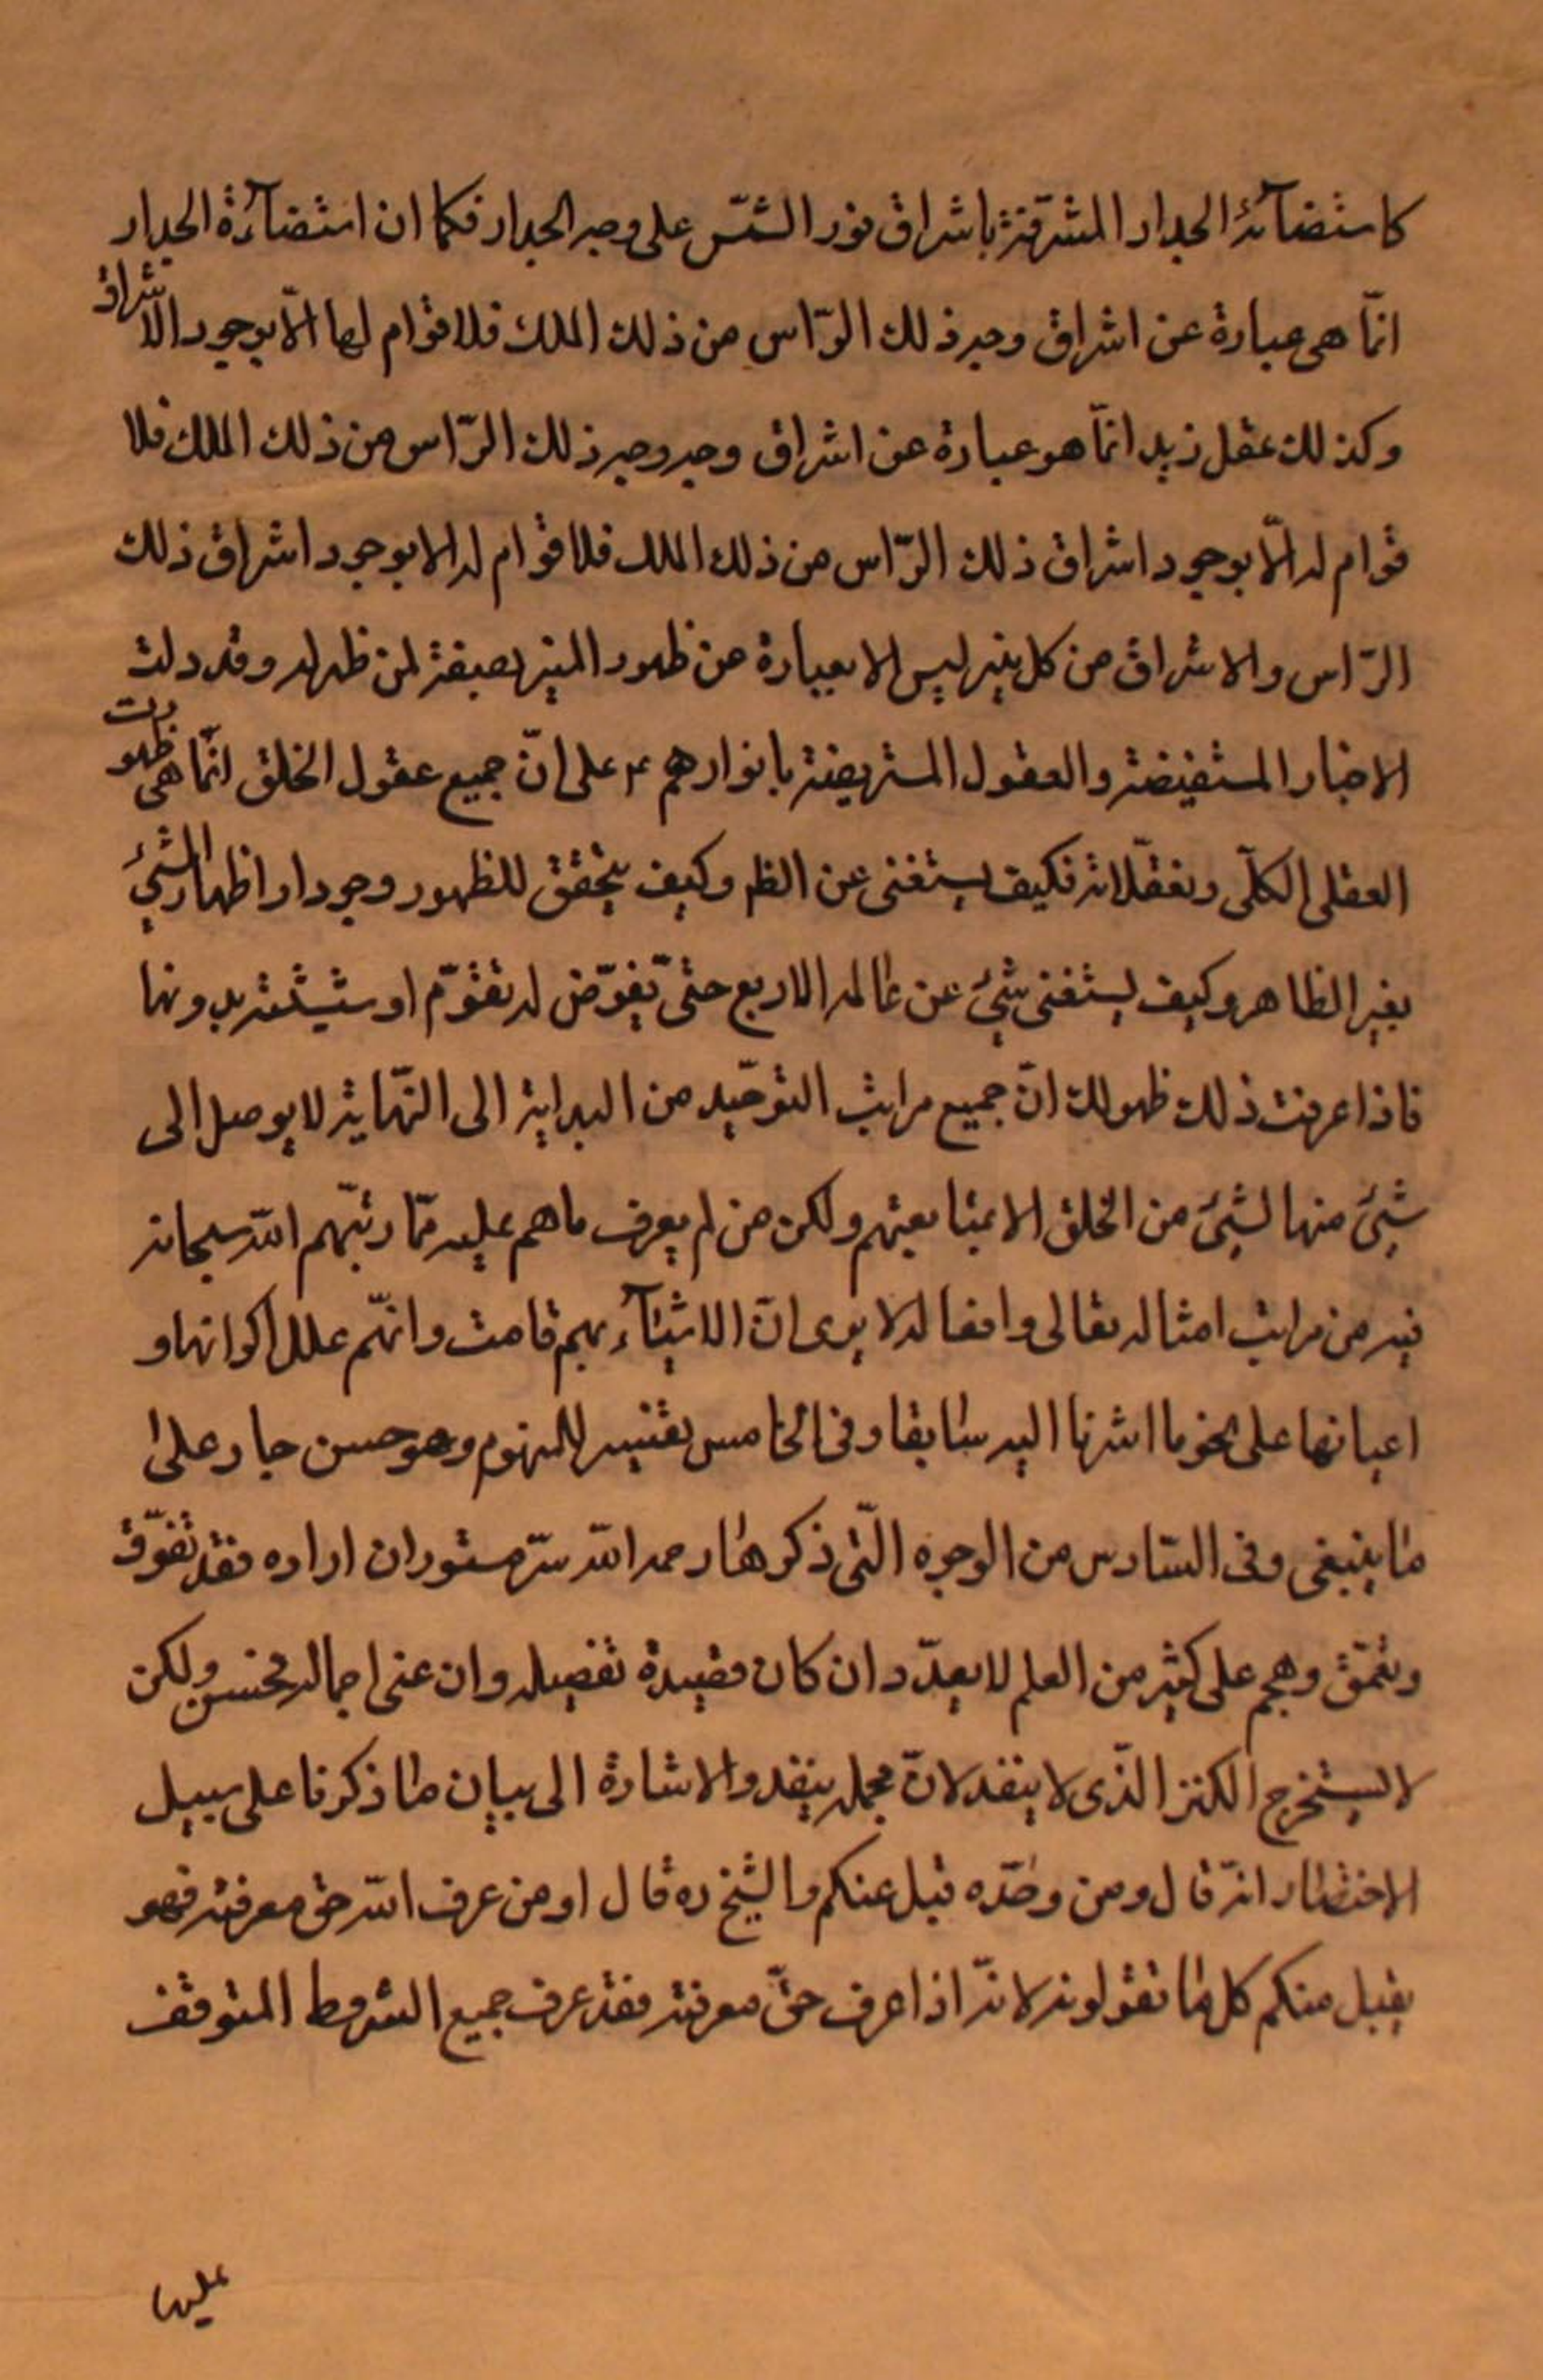 كاستضائة الجدار المشرقة باشراق نور الشمّس على وجه الجدار فكما ان استضآءة الجدار
انمّا هى عبارة عن اشراق وجه ذلك الرّاس من ذلك الملك فلا قوام لها الاّ بوجود الاشراق
وكذلك عقل زيد انمّا هو عبارة عن اشراق وجه وجه ذلك الرّاس من ذلك الملك فلا
قوام له الاّ بوجود اشراق ذلك الرّاس من ذلك الملك فلا قوام له الا بوجود اشراق ذلك
الرّاس والاشراق من كل منير ليس الا عبارة عن ظهور المنير بصفة لمن ظهر له وقد دلت
الاخبار المستفيضة والعقول المستضيئة بانوارهم ع على انّ جميع عقول الخلق انمّا هى ظهورت
العقلى الكلّى وتعقّلاته فكيف يستغنى عن الظ وكيف يتحقق للظهور وجود او اظهار الشئ
بغير الظاهر وكيف يستغنى شئ عن علله الاربع حتىّ يفوّض له تقوّم او شيئية بدونها
فاذا عرفت ذلك ظهر لك انّ جميع مراتب التوحّيد من البداية الى النهّاية لا يوصل الى
شئ منها لشئ من الخلق الا بمتابعتهم ولكن من لم يعرف ما هم عليه ممّا رتبّهم الله سبحانه
فيه من مراتب امثاله تعالى وافعاله لا يرى انّ الاشيآء بهم قامت وانهّم علل اكوانها و
اعيانها على نحو ما اشرنا اليه سابقا وفى الخامس تفسير للمفهوم وهو حسن جار على
ما ينبغى وفى السّادس من الوجوه الّتى ذكرها رحمه الله سرّ مستور ان اراده فقد تفوّق
وتعمّق وهجم على كثير من العلم لا يعدّ وان كان قصده تفصيله وان عنى اجماله فحسن ولكن
لا يستخرج الكنز الذّى لا ينفد لانّ مجمله ينفد والاشارة الى بيان ما ذكرنا على سبيل
الاختصار انّه قال ومن وحّده قبل عنكم والشيخ ره قال او من عرف الله حق معرفته فهو
يقبل منكم كل ما تقولونه لانّه اذا عرف حقّ معرفته فقد عرف جميع الشروط المتوقف
عليها